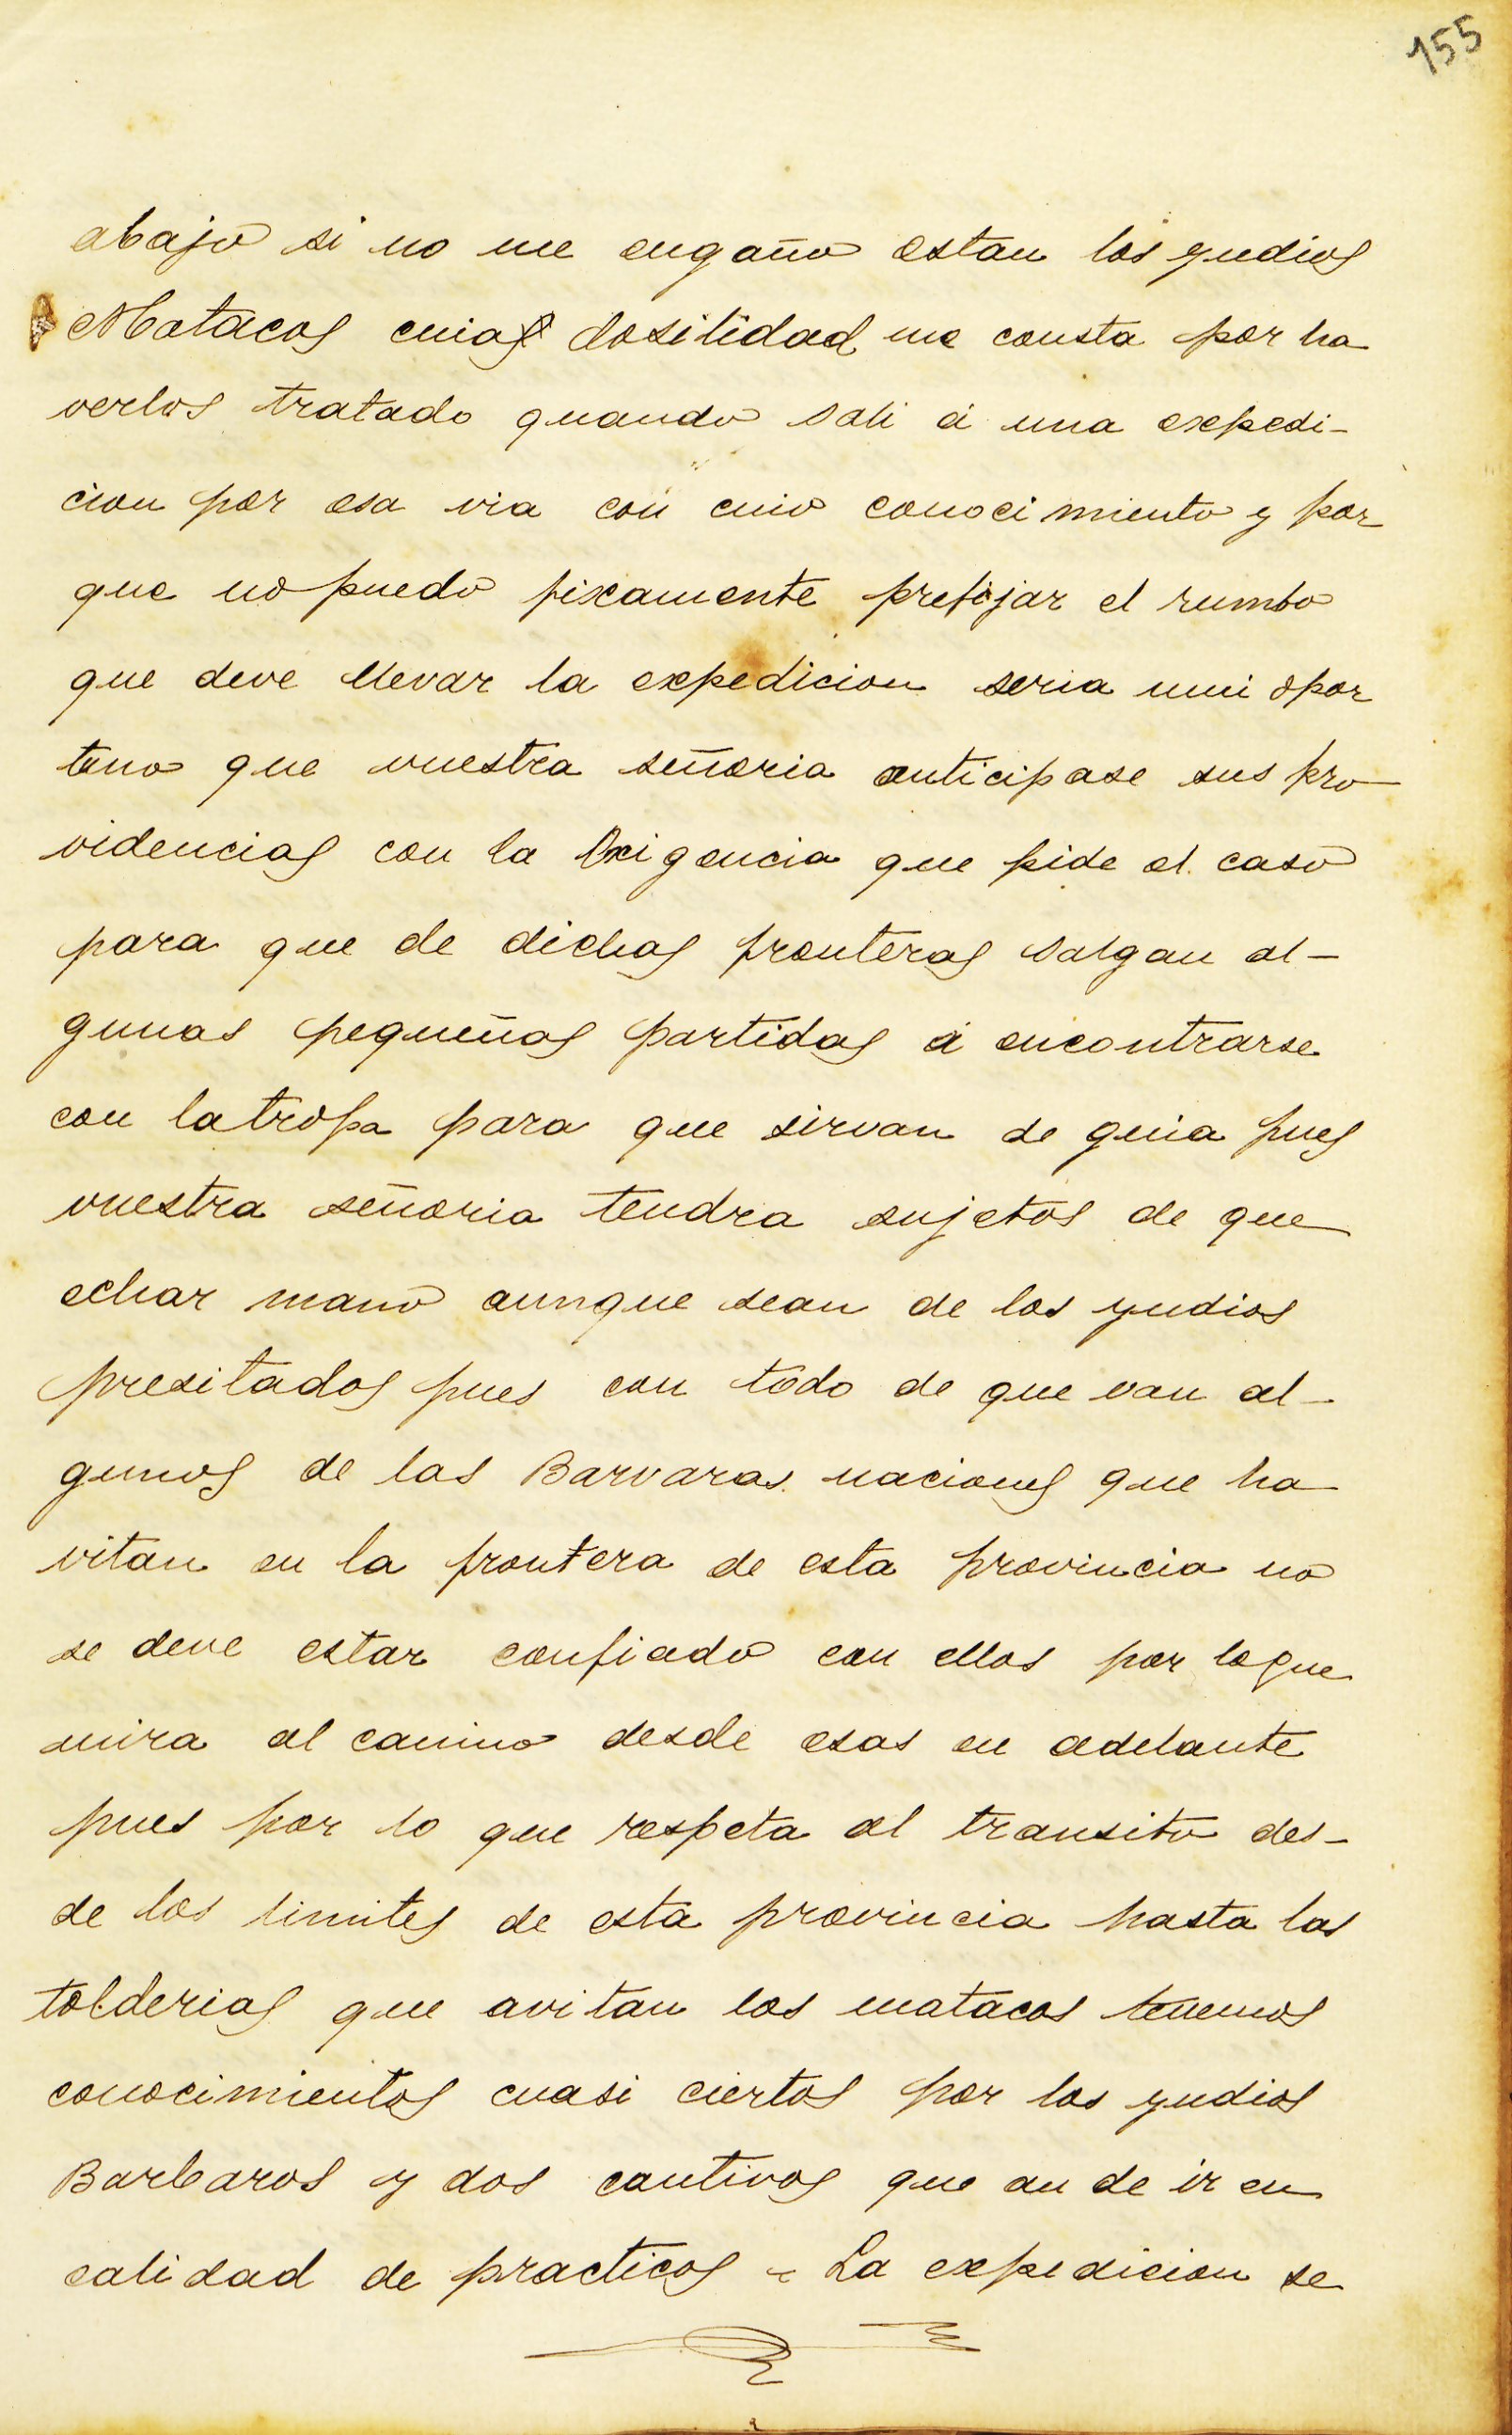 155
abajo si no me engaño estan los yndios
Matacos cuia dosilidad me consta por ha
verlos tratado quando sali á una expedi-
cion por esa via con cuio conocimiento y por
que no puedo fixamente prefijar el rumbo
que deve llevar la expedicion seria mui opor
tuno que vuestra señoria anticipase sus pro
videncias con la Exigencia que pide el caso
para que de dichas fronteras salgan al-
gunas pequeñas partidas á encontrarse
con la tropa para que sirvan de guia pues
vuestra señoria tendra sujetos de que
echar mano aunque sean de los yndios
presitados pues con todo de que van al-
gunos de las Barvaras naciones que ha
vitan en la frontera de esta provincia no
se deve estar confiado con ellos por loque
mira al camino desde esas en adelante
pues por lo que respeta al transito des-
de los limites de esta provincia hasta las
tolderias que avitan los matacos tenemos
conocimientos cuasi ciertos por los yndios
Barbaros y dos cautivos que an de ir en
calidad de practicos = La expedicion se